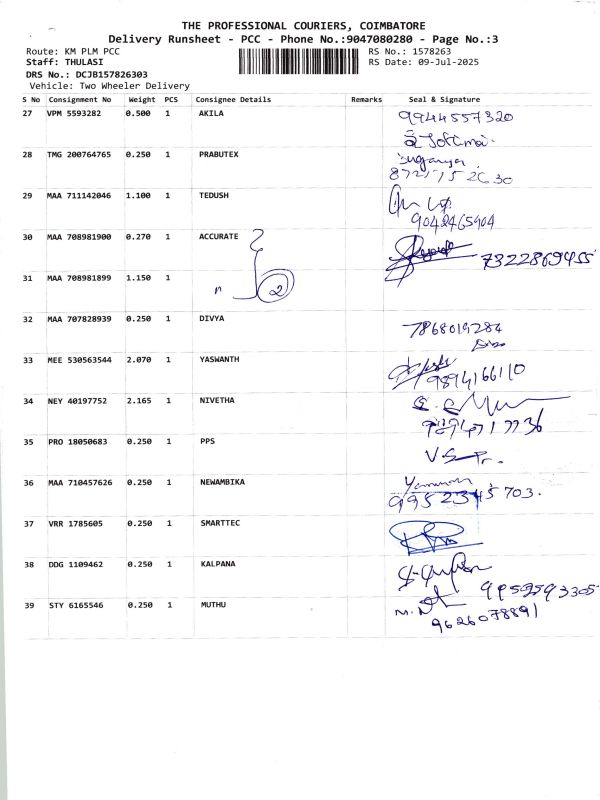 THE PROFESSIONAL COURIERS, COIMBATORE
Delivery Runsheet - PCC - Phone No.:9047080280 - Page No.:3
Route: KM PLM PCC
RS No.: 1578263
Staff: THULASI
RS Date: 09-Jul-2025
DRS No.: DCJB157826303
Vehicle: Two Wheeler Delivery
S No Consignment No Weight PCS Consignee Details Remarks Seal & Signature
27 VPM 5593282 0.500 1 AKILA 9944557320
28 TMG 200764765 0.250 1 PRABUTEX
29 MAA 711142046 1.100 1 TEDUSH
9042465904
30 MAA 708981900 0.270 1 ACCURATE 7322869455
31 MAA 708981899 1.150 1 2
32 MAA 707828939 0.250 1 DIVYA 7868019284
33 MEE 530563544 2.070 1 YASWANTH 9894166110
34 NEY 40197752 2.165 1 NIVETHA
35 PRO 18050683 0.250 1 PPS
36 MAA 710457626 0.250 1 NEWAMBIKA
9952345703.
37 VRR 1785605 0.250 1 SMARTTEC
38 DDG 1109462 0.250 1 KALPANA
9952593305
39 STY 6165546 0.250 1 MUTHU
9626078891